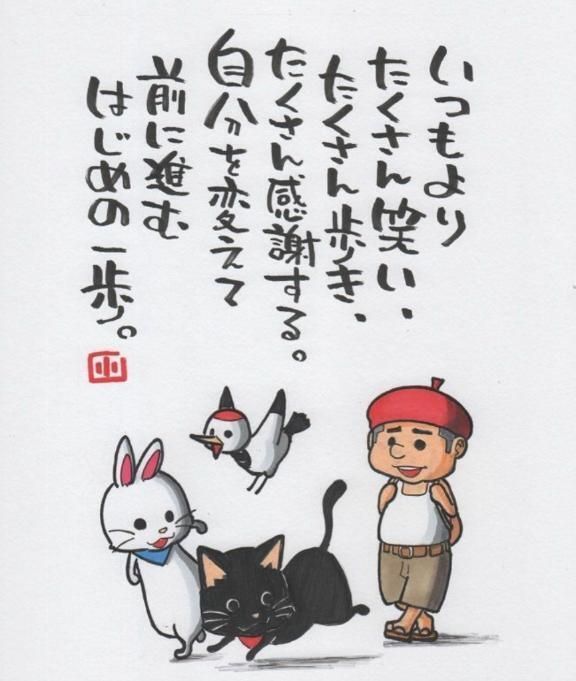 いつもより
たくさん笑い、
たくさん歩き、
たくさん感謝する。
自分を変えて
前に進む
はじめの一歩。